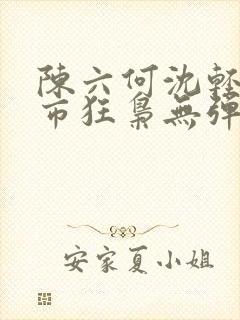 陳六何沈輕
市狂梟無彈
安家夏小姐